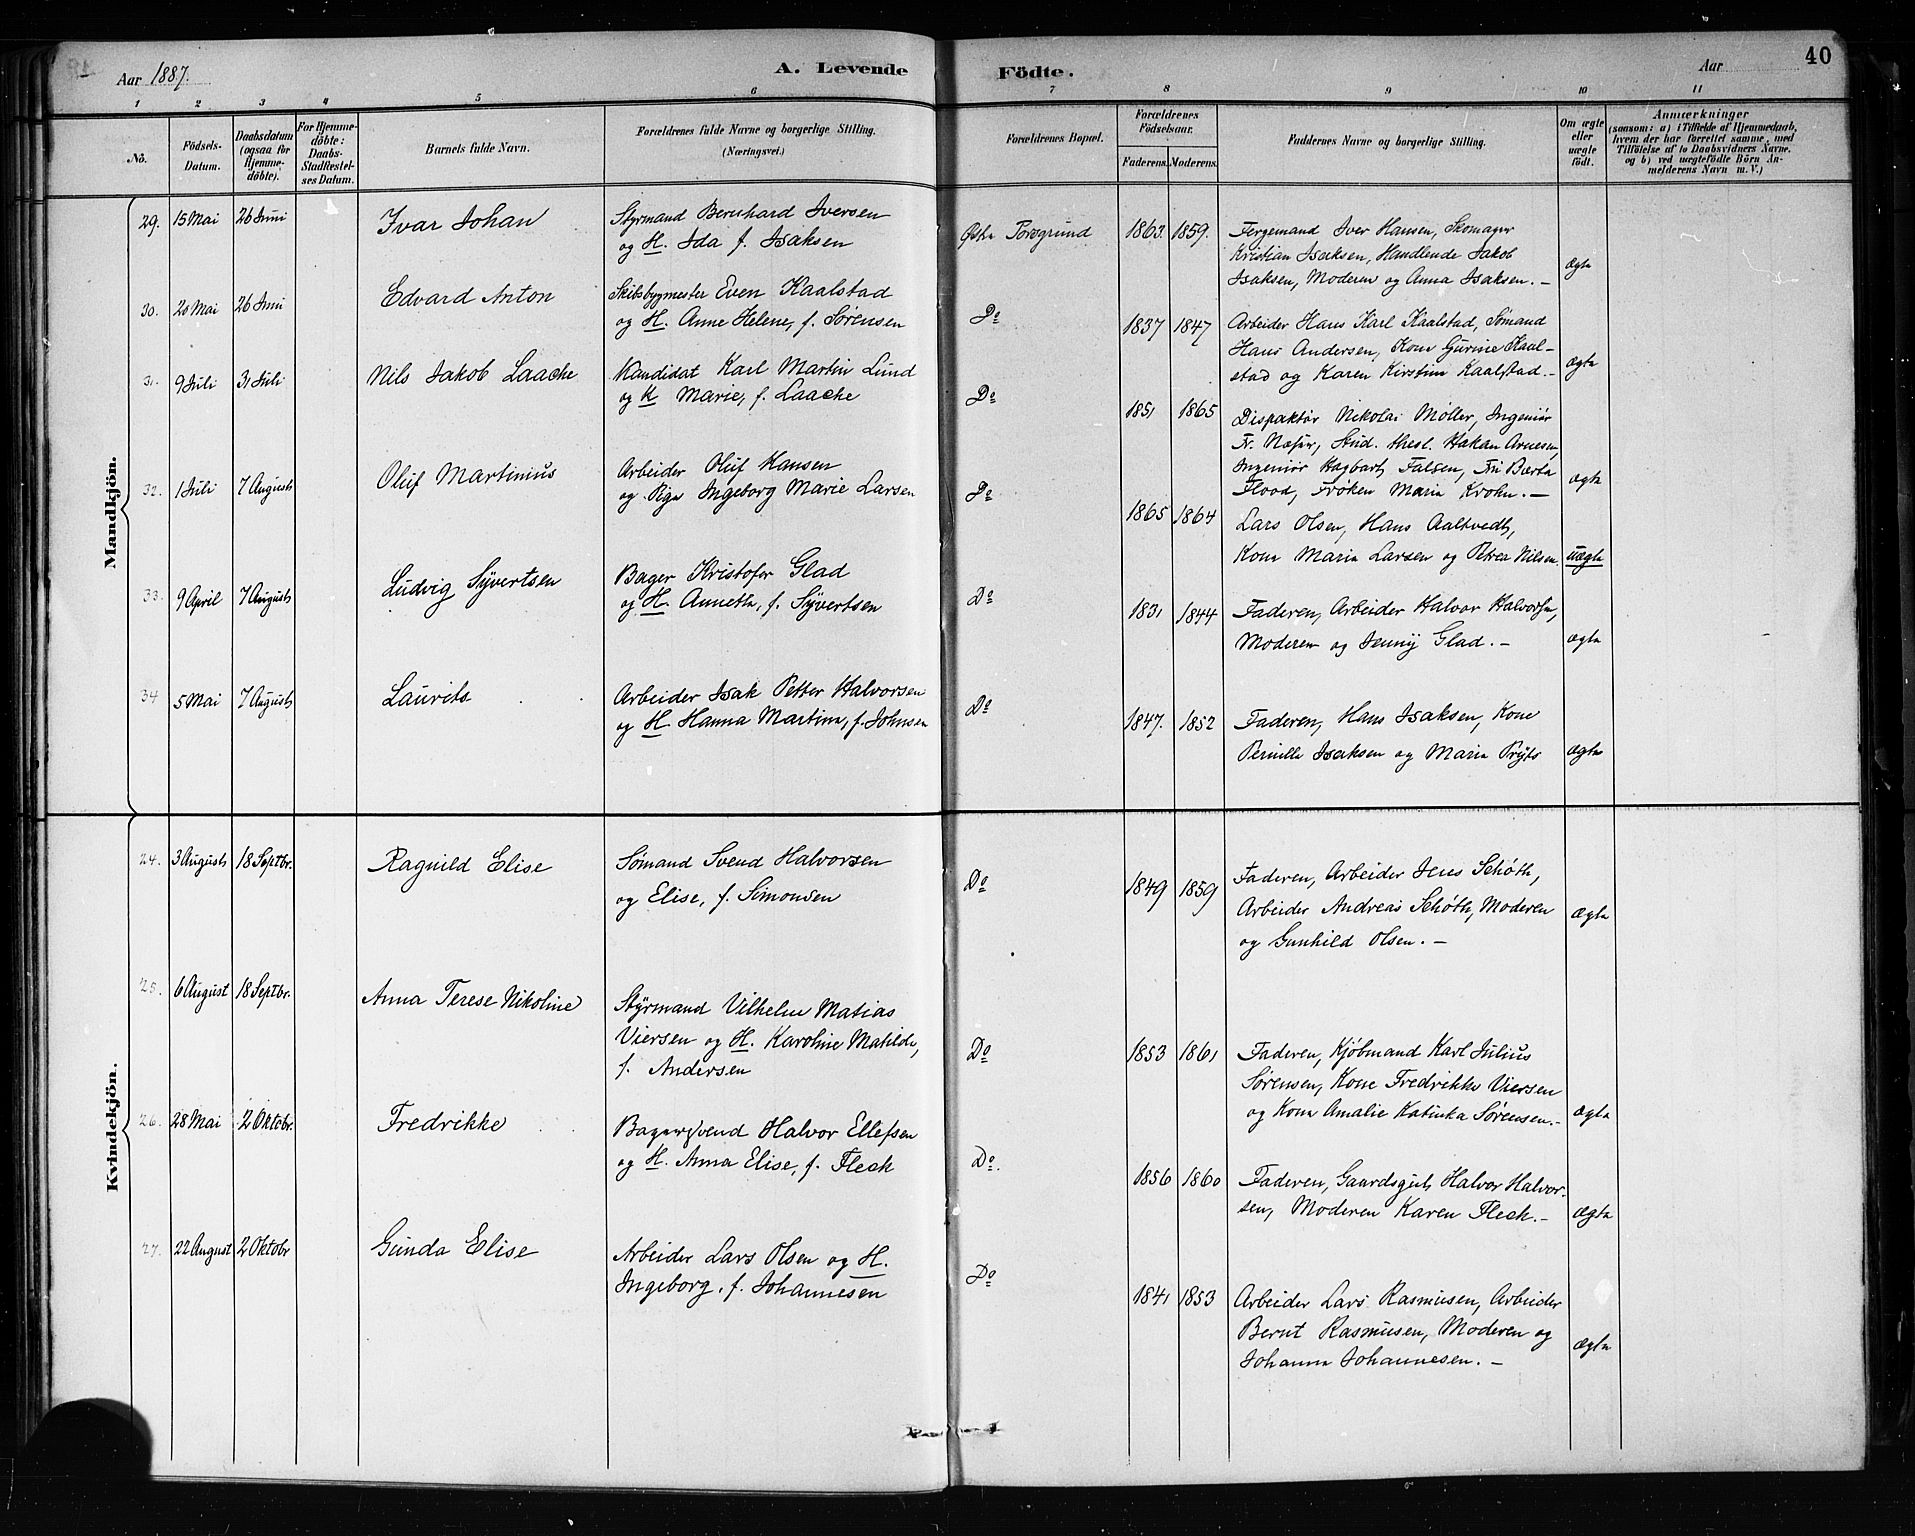 Aar 1887.
A. Levende
Födte.
Aar
40
1 2 3 4 5 6 7 8 9 10 11
Nô.
Födsels-
Datum.
Daabsdatum
(ogsaa for
Hjemme-
döbte).
For Hjemme-
döbte:
Daabs-
Stadfestel-
ses Datum.
Barnets fulde Navn.
Forældrenes fulde Navne og borgerlige Stilling.
(Næringsvei.)
Forældrenes Bopæl.
Forældrenes
Födselsaar.
Faderens. Moderens.
Faddernes Navne og borgerlige Stilling.
Om ægte
eller
uægte
födt.
Anmærkninger
(saasom: a) i Tilfælde af Hjemmedaab,
hvem der har forrettet samme, med
Tilföielse af to Daabsvidners Navne.
og b) ved uægtefödte Börn An-
melderens Navn m. V.)
Mandkjön.
29. 15 Mai 26 Juni Ivar Johan
Styrmand Bernhard Iversen
og H. Ida f. Isaksen
Østre Porsgrund 1863. 1859.
Fergemand Iver Hansen, Skomager
Kristian Isaksen, Handlende Jakob
Isaksen, Moderen og Anna Isaksen. –
ægte
30. 20 Mai 26 Juni Edvard Anton
Skibsbygmester Even Kaalstad
og H. Anne Helene, f. Sørensen
Do 1837 1847
Arbeider Hans Karl Kaalstad, Sømand
Hans Andersen, Kone Gurine Kaal-
stad og Karen Kirstine Kaalstad. –
ægte
31. 9 Juli 31 Juli Nils Jakob Laache
Kandidat Karl Martin Lund
og H Marie, f. Laache
Do 1851 1865
Dispaktør Nikolai Møller, Ingeniør
Fr. Næser, Stud. theol. Hakan Arnesen,
Ingeniør Hagbart Falsen, Fru Bærta
Flood, Frøken Maria Krohn. –
ægte
32. 1 Juli 7 August Oluf Martinius
Arbeider Oluf Hansen
og Pige Ingeborg Marie Larsen
Do 1865 1864
Lars Olsen, Hans Aaltvedt,
Kone Maria Larsen og Petrea Nilsen
uægte
33. 9 April 7 August Ludvig Syvertsen
Bager Kristofer Glad
og H. Annette, f. Syvertsen
Do 1831 1844
Faderen, Arbeider Halvor Halvorsen,
Moderen og Jenny Glad. –
ægte
34 5 Mai 7 August Laurits
Arbeider Isak Petter Halvorsen
og H. Hanna Martine, f. Johnsen
Do 1847. 1852
Faderen, Hans Isaksen, Kone
Pernille Isaksen og Maria Pryts
ægte
Kvindekjön.
24. 3 August 18 Septbr. Ragnild Elise
Sømand Svend Halvorsen
og Elise, f. Simonsen
Do 1849 1859
Faderen, Arbeider Jens Schøth,
Arbeider Andreas Schøth, Moderen
og Gunhild Olsen. –
ægte
25. 6 August 18 Septbr. Anna Terese Nikoline
Styrmand Vilhelm Matias
Viersen og H. Karoline Matilde,
f. Andersen
Do 1853 1861
Faderen, Kjøbmand Karl Julius
Sørensen, Kone Fredrikke Viersen
og Kone Amalie Katinka Sørensen. –
ægte
26. 28 Mai 2 Oktobr. Fredrikke
Bagersvend Halvor Ellefsen
og H. Anna Elise, f. Fleck
Do. 1856 1860
Faderen, Gaardsgut Halvor Halvor-
sen, Moderen Karen Fleck. –
ægte
27. 22 August 2 Oktobr Gunda Elise
Arbeider Lars Olsen og H.
Ingeborg, f. Johannesen
Do 1841 1853
Arbeider Lars Rasmusen, Arbeider
Bernt Rasmusen, Moderen og
Johanne Johannesen. –
ægte